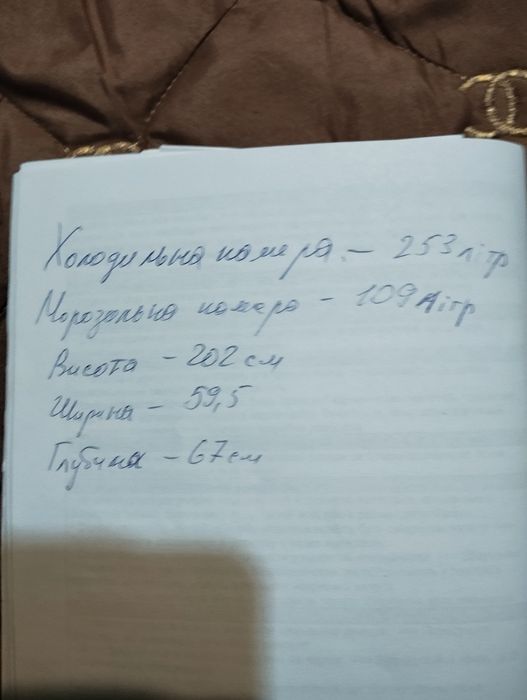 Холодильна камера. – 253 літр
Морозольна камера – 109 літр
Висота – 202 см
Ширина – 59,5
Глубина – 67 см